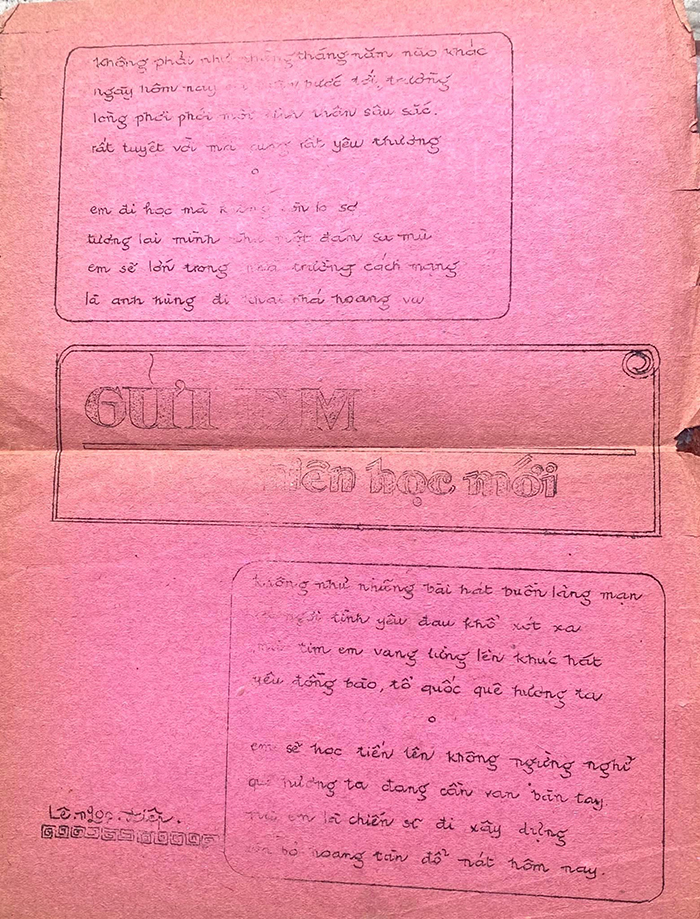 không phải như những tháng năm nào khác
ngày hôm nay bước tới, trường
lòng phơi phới một sâu sắc.
rất tuyệt vời mà cũng rất yêu thương
em đi học mà không còn lo sợ
tương lai mình như một đám sa mù
em sẽ lớn trong nhà trường cách mạng
là anh hùng đi khai phá hoang vu
GỬI EM
niên học mới
không như những bài hát buồn lãng mạn
tình yêu đau khổ xót xa
tim em vang lừng lên khúc hát
yêu đồng bào, tổ quốc quê hương ta
em sẽ học tiến lên không ngừng nghỉ
quê hương ta đang cần vạn bàn tay
em là chiến sĩ đi xây dựng
hoang tàn đổ nát hôm nay.
Lê Ngọc